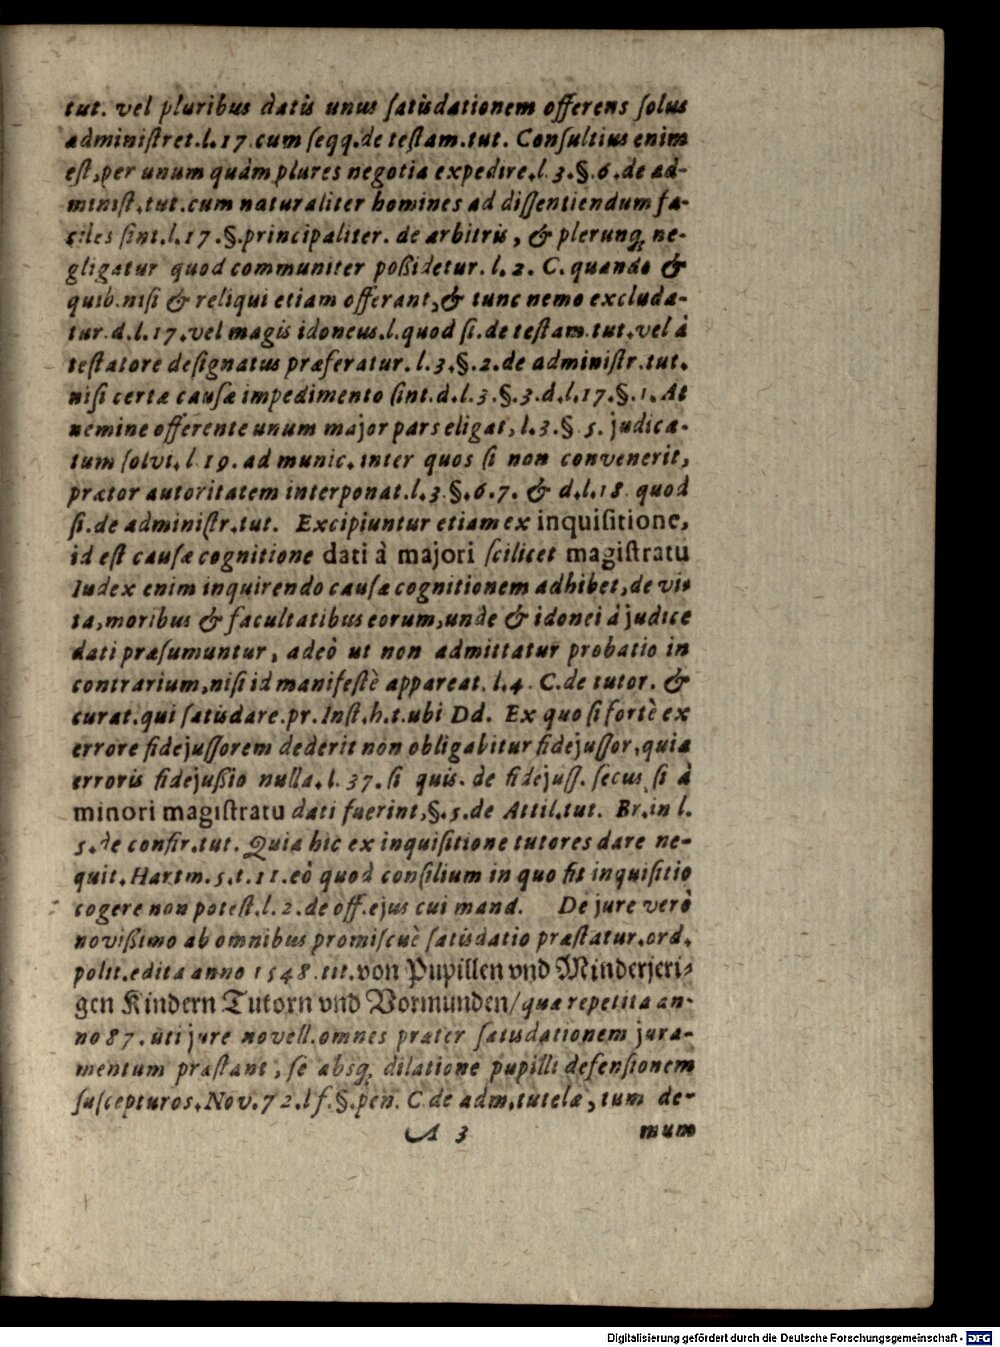 tut. vel pluribus datis unus ſatisdationem offerens ſolus
adminiſtret.l.17.cum ſeqq.de teſtam.tut. Conſultius enim
eſt, per unum quàm plures negotia expedire.l.3.§.6.de ad-
miniſt.tut.cum naturaliter homines ad diſſentiendum fa-
ciles ſint.l.17.§.principaliter. de arbitris, & plerunq; ne-
gligatur quod communiter poßidetur. l.2. C. quando &
quib.niſi & reliqui etiam offerant, & tunc nemo excluda-
tur.d.l.17.vel magis idoneus.l.quod ſi.de teſtam.tut.vel à
teſtatore deſignatus præferatur. l.3.§.2.de adminiſtr.tut.
niſi certæ cauſæ impedimento ſint.d.l.3.§.3.d.l.17.§.1. At
nemine offerente unum major pars eligat, l.3.§.5. judica-
tum ſolvi.l.19. ad munic. inter quos ſi non convenerit,
prætor autoritatem interponat.l.3.§.6.7. & d.l.18. quod
ſi.de adminiſtr.tut. Excipiuntur etiam ex inquiſitione,
id eſt cauſæ cognitione dati à majori ſcilicet magiſtratu
Iudex enim inquirendo cauſæ cognitionem adhibet, de vi-
ta, moribus & facultatibus eorum, unde & idonei à judice
dati præſumuntur, adeò ut non admittatur probatio in
contrarium, niſi id manifeſtè appareat. l.4. C.de tutor. &
curat.qui ſatisdare.pr.Inſt.h.t.ubi Dd. Ex quo ſi fortè ex
errore fidejuſſorem dederit non obligabitur fidejuſſor, quia
erroris fidejußio nulla.l.37.ſi quis. de fidejuſſ. ſecus, ſi à
minori magiſtratu dati fuerint, §.5.de Attil.tut. Br.in l.
5.de confir.tut. Quia hic ex inquiſitione tutores dare ne-
quit. Hartm.5.t.11.eò quod conſilium in quo fit inquiſitio
cogere non poteſt.l.2.de off.ejus cui mand. De jure verò
novißimo ab omnibus promiſcuè ſatisdatio præſtatur.ord.
polit.edita anno 1548.tit.von Pupillen vnd Minderjeri-
gen Kindern Tutorn vnd Vormunden/ quæ repetita an-
no 87. uti jure novell.omnes præter ſatisdationem jura-
mentum præſtant, ſe absq; dilatione pupilli defenſionem
ſuſcepturos.Nov.72.l f.§.pen. C de adm.tutelæ, tum de-
A 3 mum
Digitalisierung gefördert durch die Deutsche Forschungsgemeinschaft - DFG